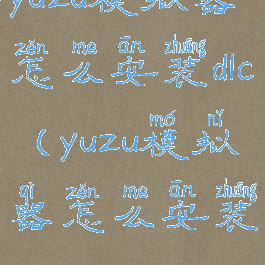 yuzu模拟器
zěn me ān zhuāng
怎么安装dlc
mó nǐ
(yuzu模拟
qì zěn me ān zhuāng
器怎么安装